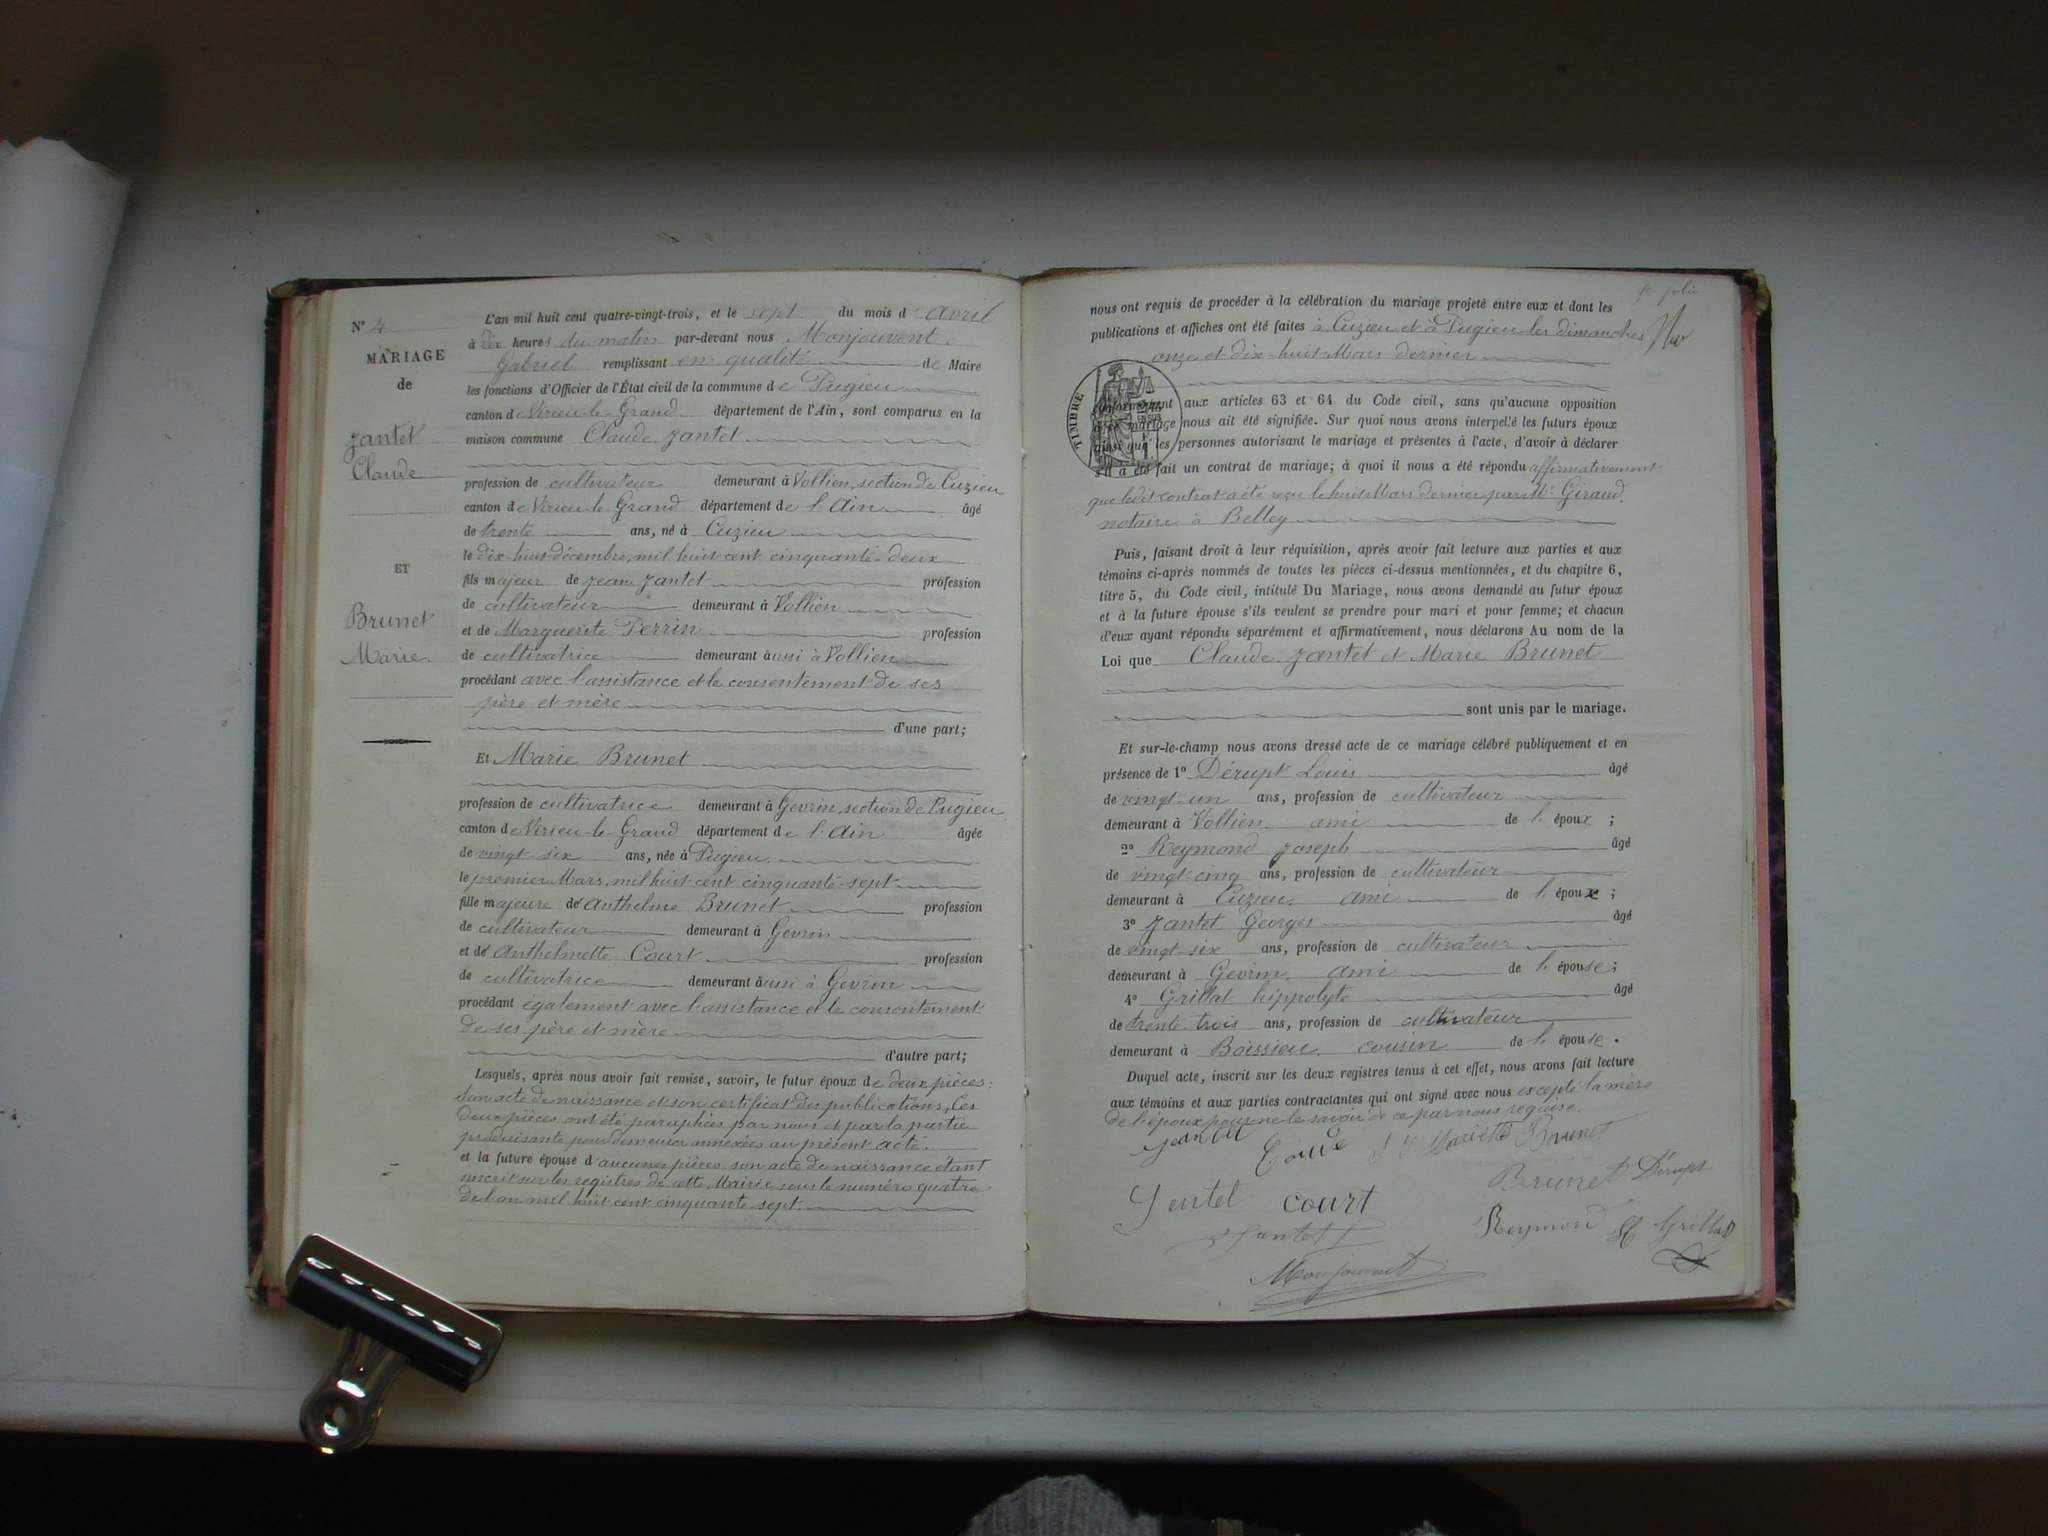 N° 4
MARIAGE
de
Jantet
Claude
ET
Brunet
Marie
L'an mil huit cent quatre-vingt-trois, et le sept du mois d' avril
à dix heures du matin par-devant nous Monjouvent
Gabriel remplissant en qualité de Maire
les fonctions d'Officier de l'État civil de la commune de Pugieu
canton de Virieu-le-Grand département de l'Ain, sont comparus en la
maison commune Claude Jantet
profession de cultivateur demeurant à Vollien, section de Cuzieu
canton de Virieu-le-Grand département de l'Ain âgé
de trente ans, né à Cuzieu
le dix-huit décembre, mil huit cent cinquante-deux
fils majeur de Jean Jantet profession
de cultivateur demeurant à Vollien
et de Marguerite Perrin profession
de cultivatrice demeurant aussi à Vollien
procédant avec l'assistance et le consentement de ses
père et mère
d'une part;
Et Marie Brunet
profession de cultivatrice demeurant à Gevrin, section de Pugieu
canton de Virieu-le-Grand département de l'Ain âgée
de vingt-six ans, née à Pugieu
le premier Mars, mil huit cent cinquante-sept
fille majeure de Anthelme Brunet profession
de cultivateur demeurant à Gevrin
et de Anthelmette Court profession
de cultivatrice demeurant aussi à Gevrin
procédant également avec l'assistance et le consentement
de ses père et mère
d'autre part;
Lesquels, après nous avoir fait remise, savoir, le futur époux de deux pièces:
Son acte de naissance et son certificat des publications, Ces
deux pièces ont été paraphées par nous et par la partie
produisante pour demeurer annexées au présent acte.
et la future épouse d'aucunes pièces son acte de naissance étant
inscrit sur les registres de cette Mairie sous le numéro quatre
de l'an mil huit cent cinquante-sept
folio
nous ont requis de procéder à la célébration du mariage projeté entre eux et dont les
publications et affiches ont été faites à Cuzieu et à Pugieu les dimanches
onze et dix-huit Mars dernier
TIMBRE
conformément aux articles 63 et 64 du Code civil, sans qu'aucune opposition
à ce mariage nous ait été signifiée. Sur quoi nous avons interpellé les futurs époux
ainsi que les personnes autorisant le mariage et présentes à l'acte, d'avoir à déclarer
s'il a été fait un contrat de mariage; à quoi il nous a été répondu affirmativement
que ledit contrat a été reçu le huit Mars dernier par Me Giraud,
notaire à Belley
Puis, faisant droit à leur réquisition, après avoir fait lecture aux parties et aux
témoins ci-après nommés de toutes les pièces ci-dessus mentionnées, et du chapitre 6,
titre 5, du Code civil, intitulé Du Mariage, nous avons demandé au futur époux
et à la future épouse s'ils veulent se prendre pour mari et pour femme; et chacun
d'eux ayant répondu séparément et affirmativement, nous déclarons Au nom de la
Loi que Claude Jantet et Marie Brunet
sont unis par le mariage.
Et sur-le-champ nous avons dressé acte de ce mariage célébré publiquement et en
présence de 1° Dérupt Louis âgé
de vingt-un ans, profession de cultivateur
demeurant à Vollien ami de l'époux ;
2° Reymond Joseph âgé
de vingt-cinq ans, profession de cultivateur
demeurant à Cuzieu ami de l'époux ;
3° Jantet Georges âgé
de vingt-six ans, profession de cultivateur
demeurant à Gevrin ami de l'épouse;
4° Grillat hippolyte âgé
de trente-trois ans, profession de cultivateur
demeurant à Boissieu cousin de l'épouse.
Duquel acte, inscrit sur les deux registres tenus à cet effet, nous avons fait lecture
aux témoins et aux parties contractantes qui ont signé avec nous excepté la mère
de l'époux pour ne le savoir de ce par nous requise.
Mariette Brunet
Brunet Dérupt
Jentet court
Jantet
Reymond H Grillat
Monjouvent